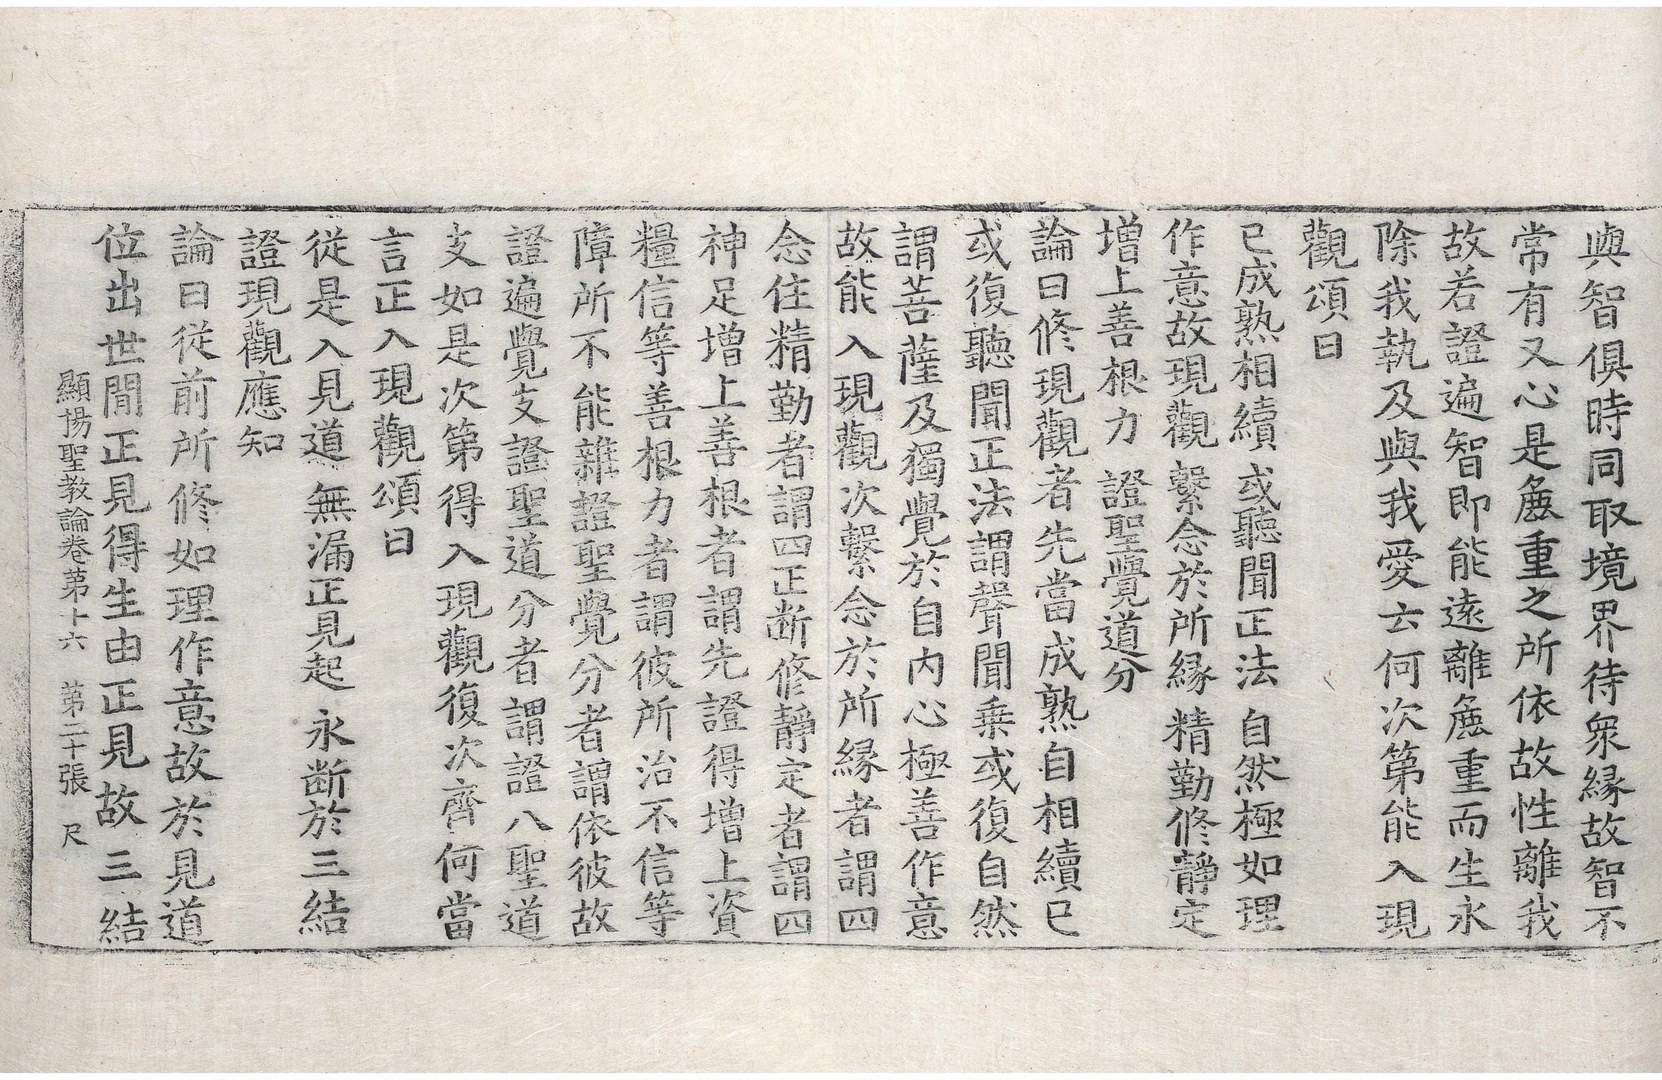 與智俱時同取境界待衆縁故智不
常有又心是麁重之所依故性離我
故若證遍智即能遠離麁重而生永
除我執及與我愛云何次第能入現
觀頌曰
已成熟相續 或聽聞正法 自然極如理
作意故現觀 繫念於所縁 精勤修靜定
增上善根力 證聖覺道分
論曰修現觀者先當成熟自相續已
或復聽聞正法謂聲聞乗或復自然
謂菩薩及獨覺於自内心極善作意
故能入現觀次繫念於所縁者謂四
念住精勤者謂四正断修靜定者謂四
神足增上善根者謂先證得增上資
糧信等善根力者謂彼所治不信等
障所不能雜證聖覺分者謂依彼故
證遍覺支證聖道分者謂證八聖道
支如是次第得入現觀復次齊何當
言正入現觀頌曰
從是入見道 無漏正見起 永断於三結
證現觀應知
論曰從前所修如理作意故於見道
位出世間正見得生由正見故三結
顯揚聖教論卷第十六 第二十張 尺